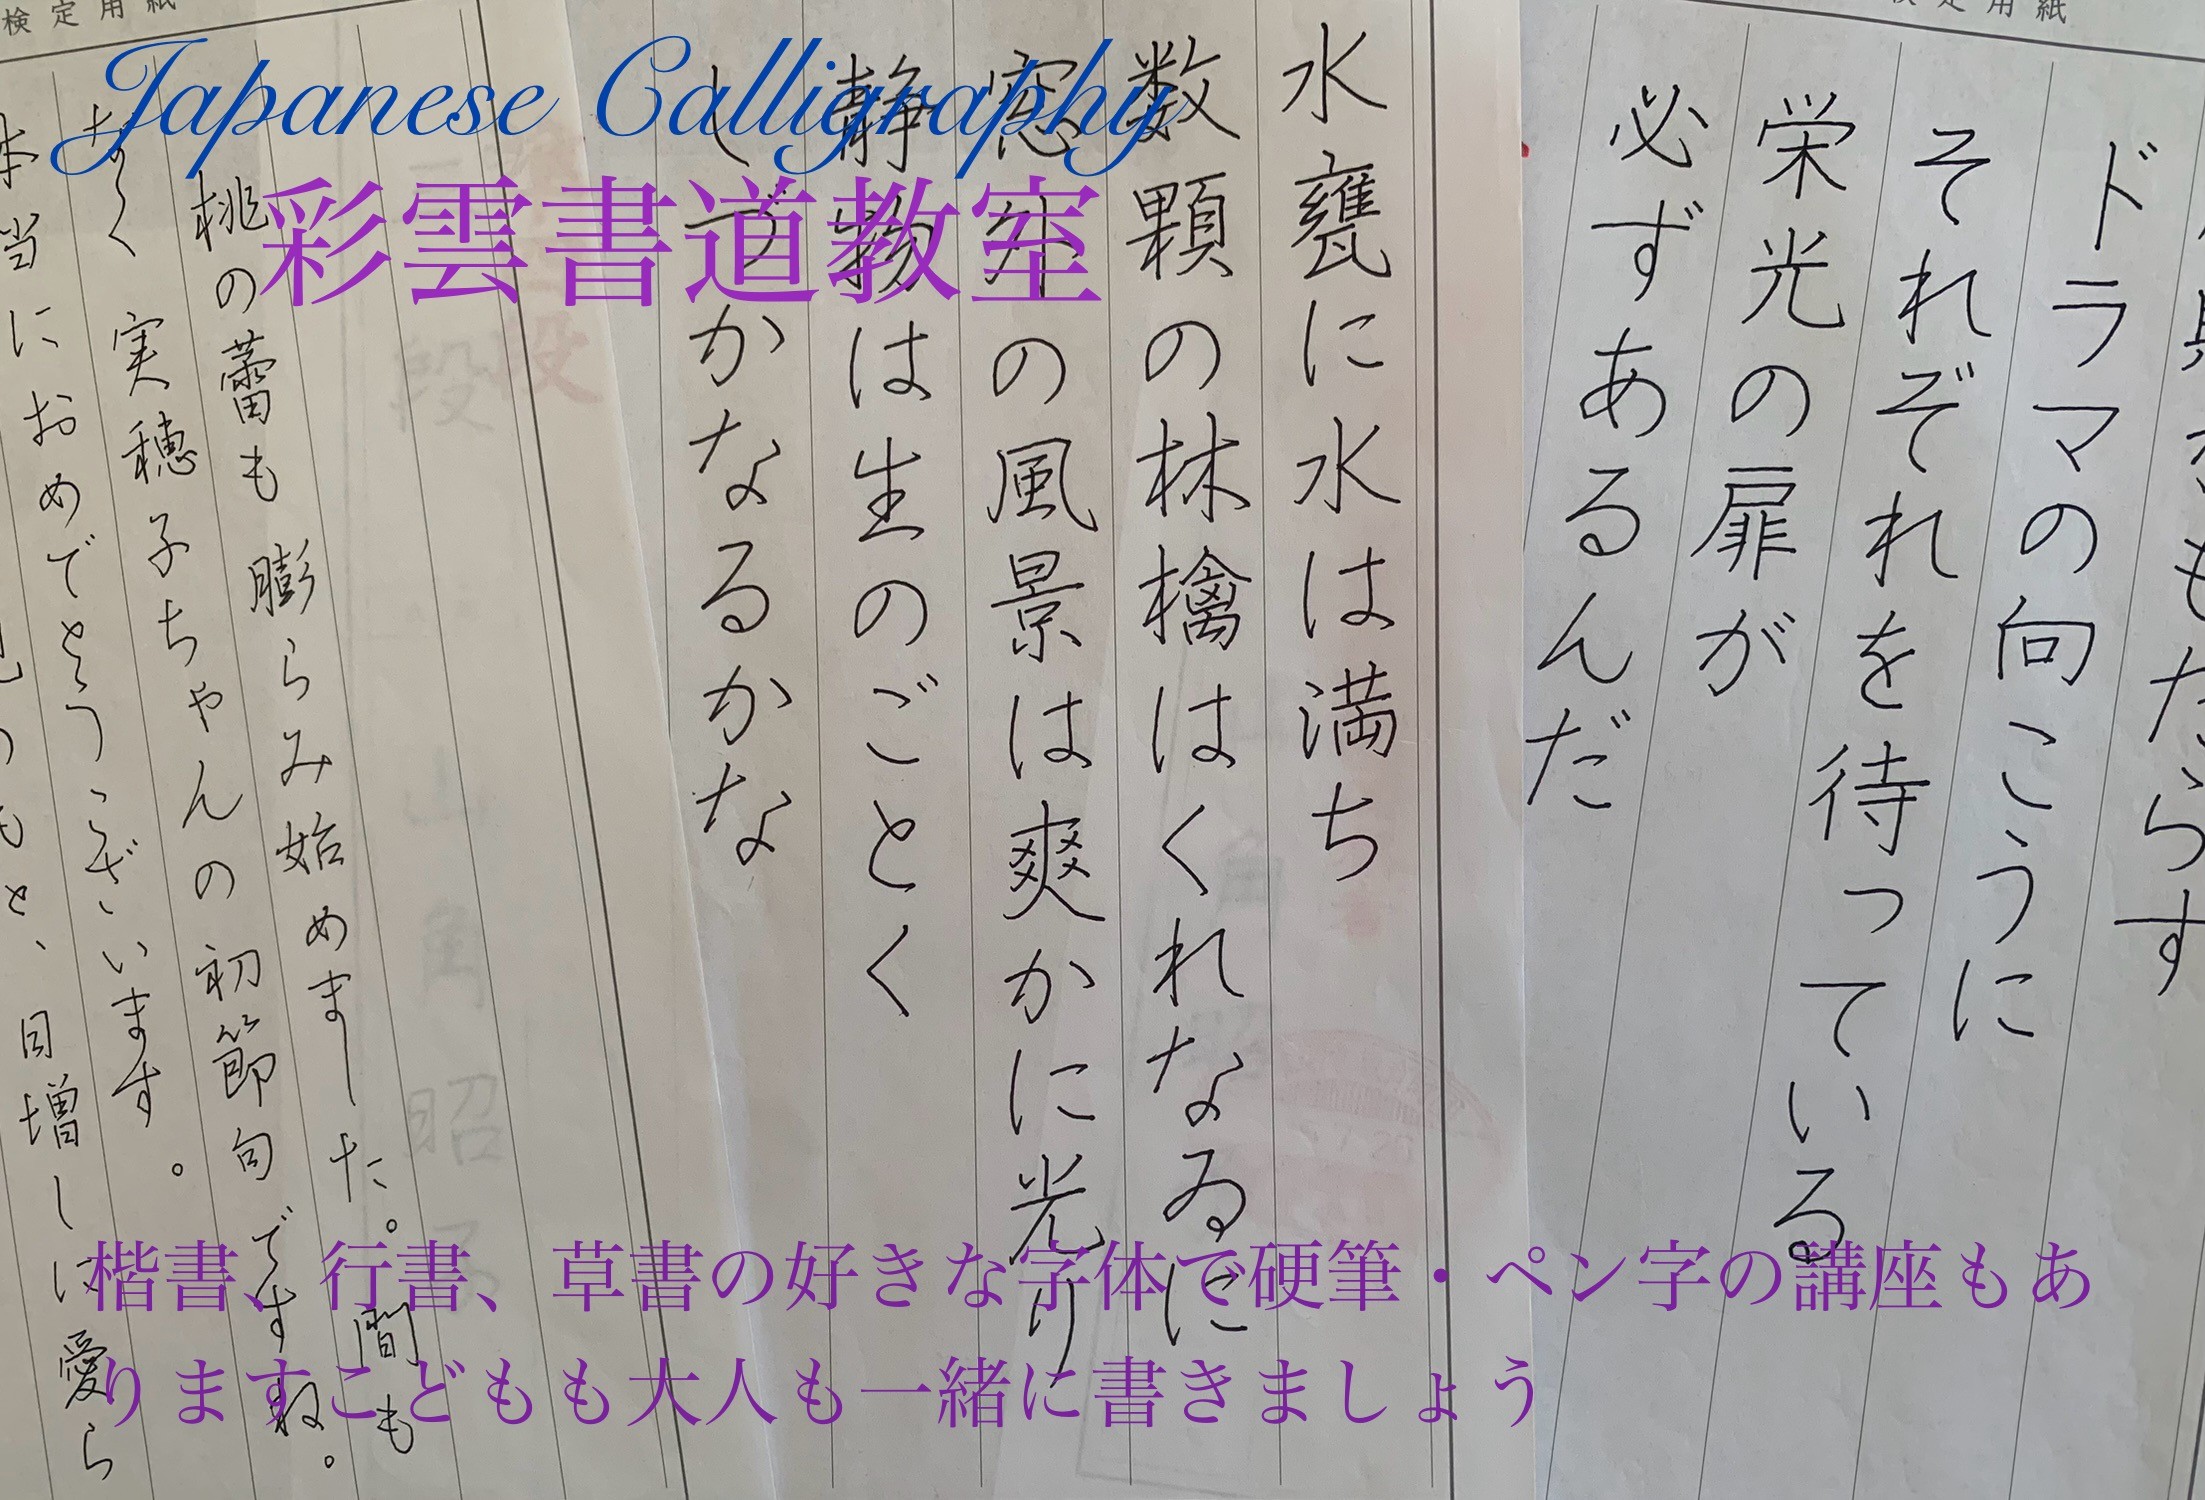 Japanese Calligraphy
彩雲書道教室
検定用紙
ドラマの向こうに
それぞれを待っている
栄光の扉が
必ずあるんだ
水甕に水は満ち
数顆の林檎はくれなゐに
窓外の風景は爽かに光り
静物は生のごとく
しづかなるかな
検定用紙
桃の蕾も膨らみ始めました。間も
なく実穂子ちゃんの初節句ですね。
本当におめでとうございます。
もと、日増しに愛ら
楷書、行書、草書の好きな字体で硬筆・ペン字の講座もあ
りますこどもも大人も一緒に書きましょう